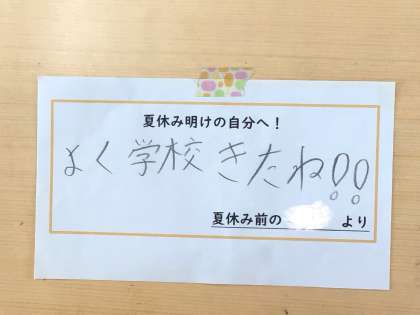 夏休み明けの自分へ！
よく学校きたね!!
夏休み前の より